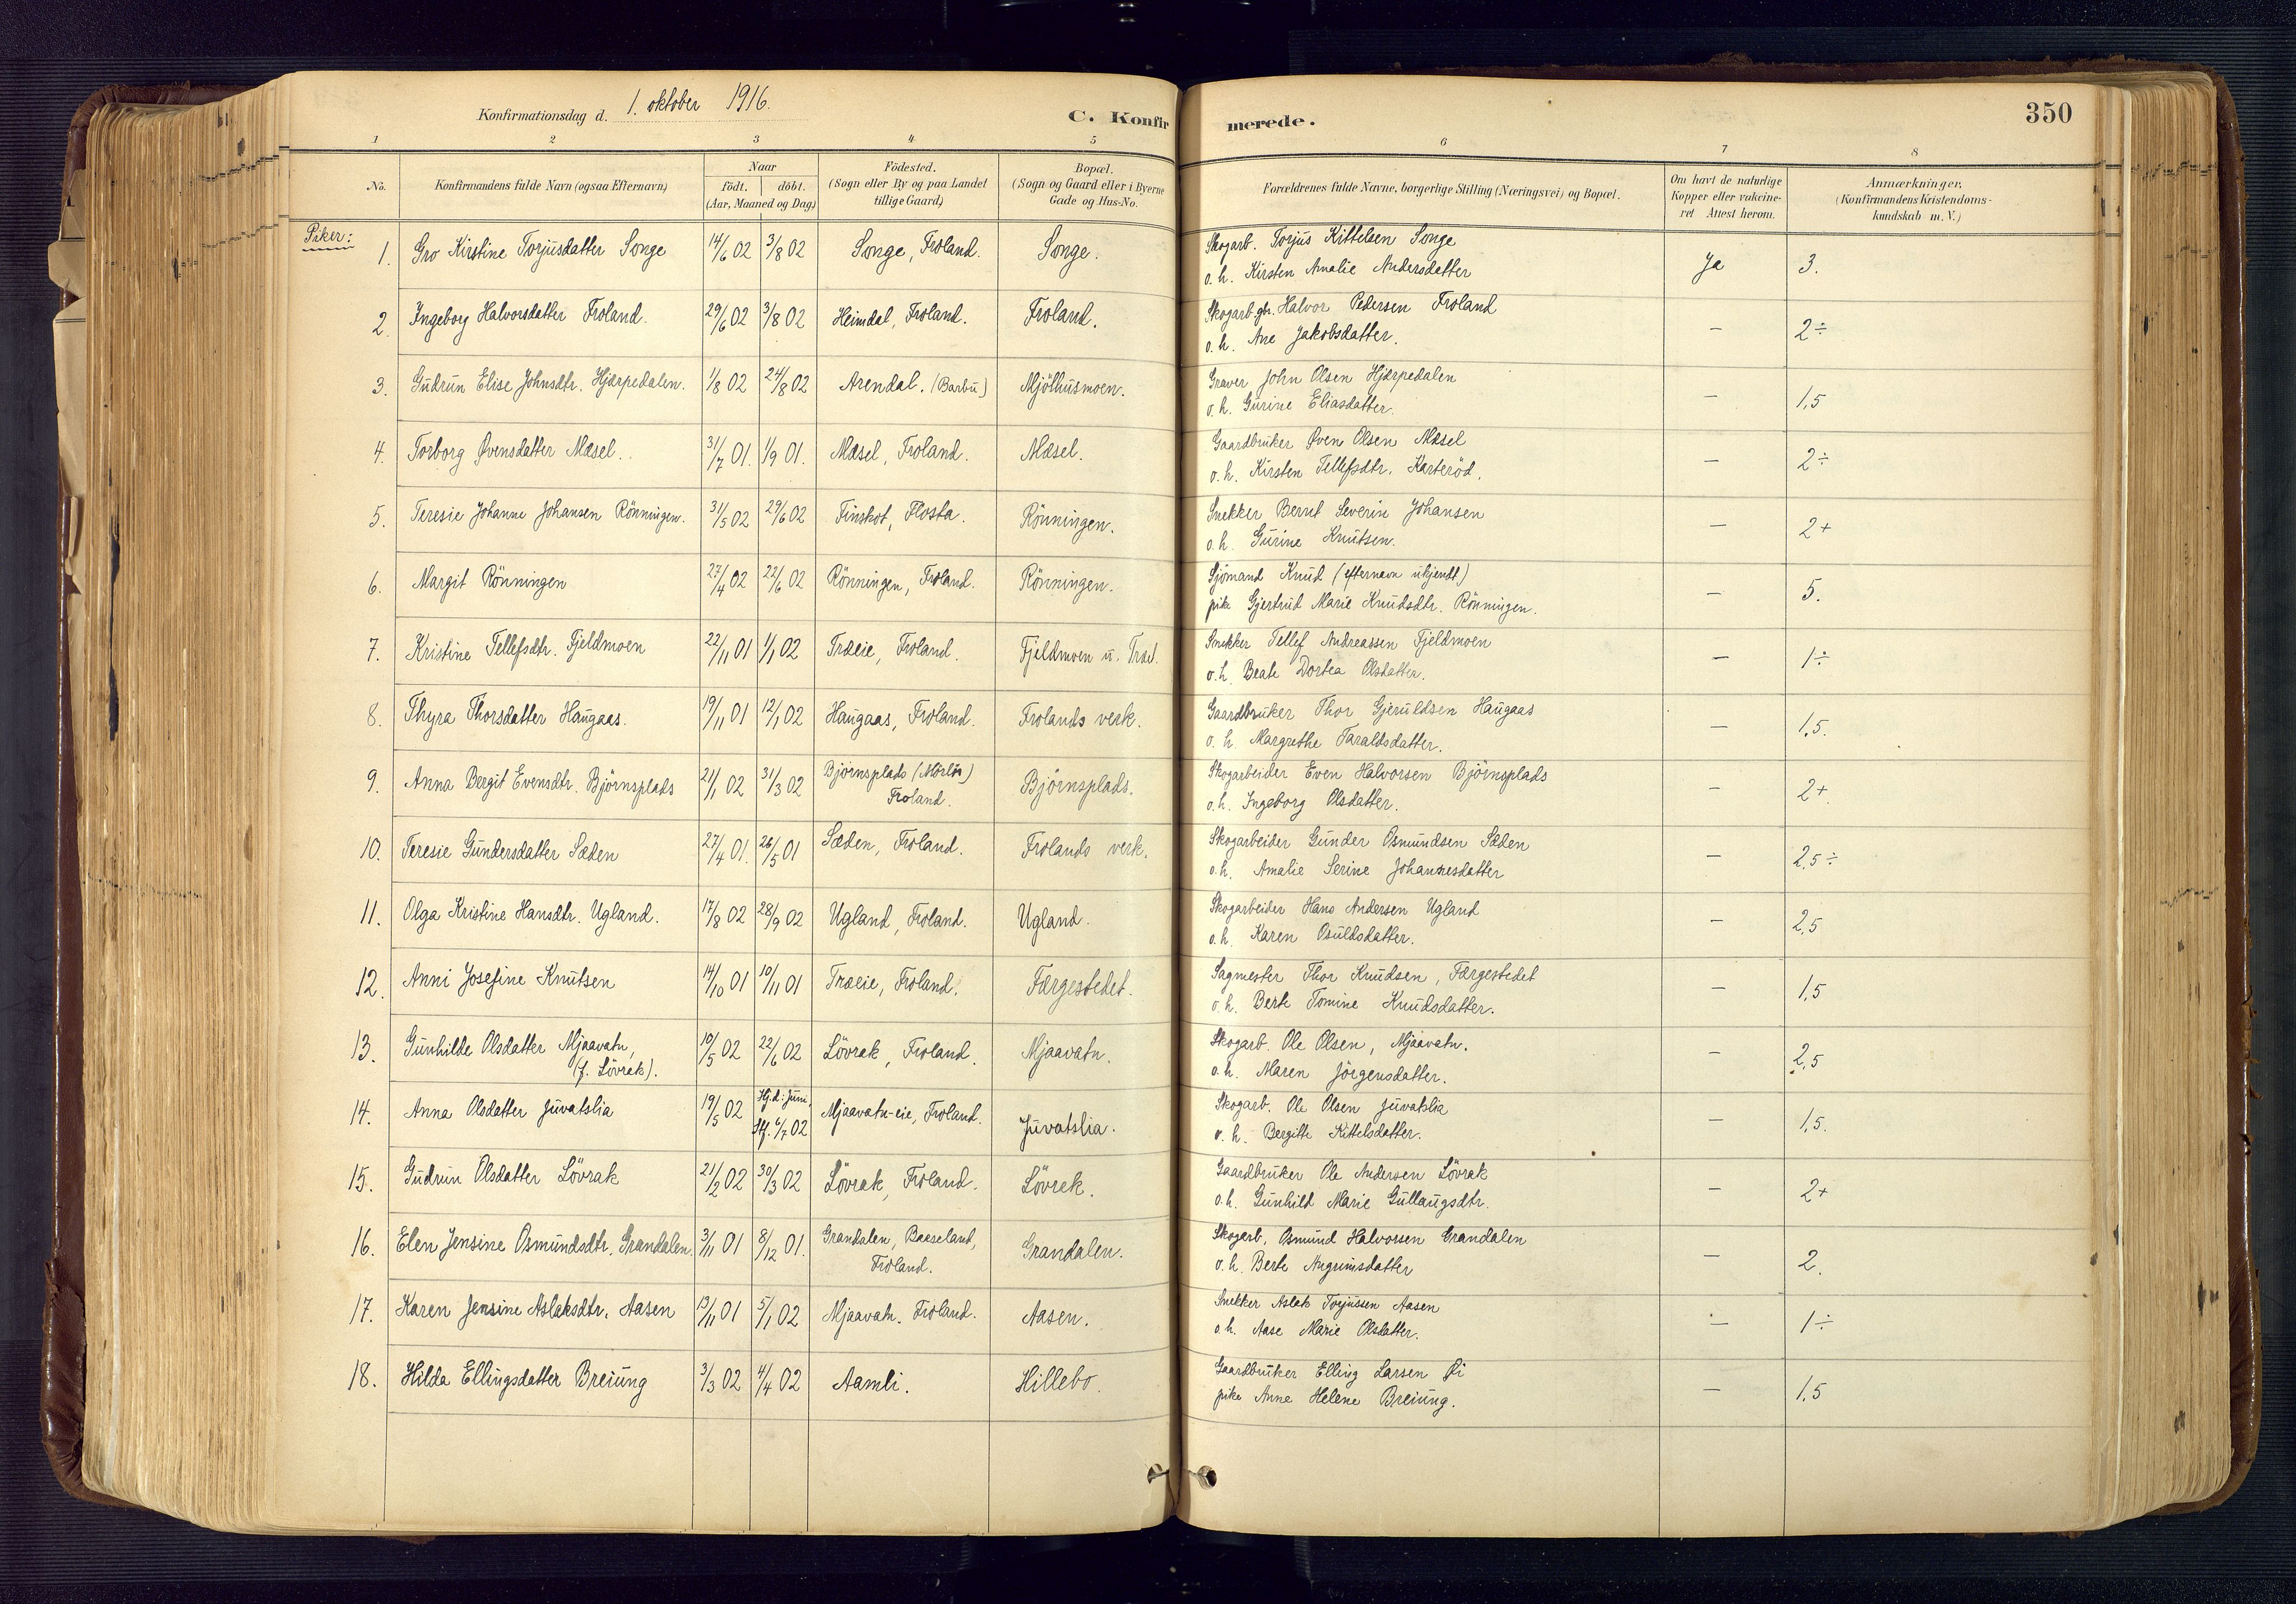 Konfirmationsdag d. 1. oktober 1916.
C. Konfirmerede.
350
1 2 3 4 5 6 7 8
No.
Konfirmandens fulde Navn (ogsaa Efternavn)
Naar
födt. döbt.
(Aar, Maaned og Dag)
Födested.
(Sogn eller By og paa Landet
tillige Gaard)
Bopæl.
(Sogn og Gaard eller i Byerne
Gade og Hus-No.
Forældrenes fulde Navne, borgerlige Stilling (Næringsvei) og Bopæl.
Om havt de naturlige
Kopper eller vakcine-
ret Attest herom.
Anmærkninger.
(Konfirmandens Kristendoms-
kundskab m. V.)
Piker:
1. Gro Kirstine Torjusdatter Songe 14/6 02 3/8 02 Songe, Froland. Songe. Skogarb. Torjus Kittelsen Songe
o. h. Kirsten Amalie Andersdatter Ja 3.
2. Ingeborg Halvorsdatter Froland. 29/6 02 3/8 02 Heimdal, Froland. Froland. Skogarb. gbr. Halvor Pedersen Froland
o. h. Ane Jakobsdatter. — 2÷
3. Gudrun Elise Johnsdtr. Hjærpedalen. 1/8 02 24/8 02 Arendal. (Barbu) Mjölhusmoen. Graver John Olsen Hjærpedalen
o. h. Gurine Eliasdatter. — 1,5
4. Torborg Øvensdatter Mæsel. 31/7 01. 1/9 01. Mæsel, Froland. Mæsel. Gaardbruker Øven Olsen Mæsel
o. h. Kirsten Tellefsdtr. Karteröd. — 2÷
5. Teresie Johanne Johansen Rönningen. 31/5 02 29/6 02 Finskot, Flosta. Rönningen. Snekker Bernt Severin Johansen
o. h. Gurine Knutsen. — 2+
6. Margit Rönningen 27/4 02 22/6 02 Rönningen, Froland. Rönningen. Sjömand Knud (efternavn ukjendt)
pike Gjertrud Marie Knudsdtr. Rönningen. — 5.
7. Kristine Tellefsdtr. Fjeldmoen 22/11 01 1/1 02 Træeie, Froland. Fjeldmoen u. Træ. Snekker Tellef Andreassen Fjeldmoen
o. h. Beate Dortea Olsdatter. — 1÷
8. Thyra Thorsdatter Haugaas. 19/11 01 12/1 02 Haugaas, Froland. Frolands verk. Gaardbruker Thor Gjeruldsen Haugaas
o. h. Margrethe Taraldsdatter. — 1,5.
9. Anna Bergit Evensdtr. Björnsplads 21/1 02 31/3 02 Björnsplads (Mörlön)
Froland. Björnsplads. Skogarbeider Even Halvorsen Björnsplads
o. h. Ingeborg Olsdatter. — 2+
10. Teresie Gundersdatter Sæden 27/4 01. 26/5 01 Sæden, Froland. Frolands verk. Skogarbeider Gunder Osmundsen Sæden
o. h. Amalie Serine Johannesdatter — 2,5÷
11. Olga Kristine Hansdtr. Ugland. 17/8 02 28/9 02 Ugland, Froland. Ugland. Skogarbeider Hans Andersen Ugland
o. h. Karen Osuldsdatter. — 2,5
12. Anni Josefine Knutsen 14/10 01 10/11 01 Træeie, Froland. Færgestedet. Sagmester Thor Knudsen, Færgestedet
o. h. Berte Tomine Knudsdatter. — 1,5
13. Gunhilde Olsdatter Mjaavatn,
(f. Lövrak). 10/5 02 22/6 02 Lövrak, Froland. Mjaavatn. Skogarb. Ole Olsen, Mjaavatn.
o. h. Maren Jörgensdatter. — 2,5
14. Anna Olsdatter Juvatslia 19/5 02 Hj.d. i Juni,
Stf. 6/7 02 Mjaavatn-eie, Froland. Juvatslia. Skogarb. Ole Olsen Juvatslia
o. h. Bergitte Kittelsdatter. — 1,5.
15. Gudrun Olsdatter Lövrak 21/2 02 30/3 02 Lövrak, Froland. Lövrak. Gaardbruker Ole Andersen Lövrak
o. h. Gunhild Marie Gullaugsdtr. — 2+
16. Elen Jensine Osmundsdtr. Grandalen. 3/11 01 8/12 01. Grandalen, Baaseland,
Froland. Grandalen. Skogarb. Osmund Halvorsen Grandalen
o. h. Berte Angrimsdatter — 2.
17. Karen Jensine Aslaksdtr. Aasen 13/11 01 5/1 02 Mjaavatn. Froland. Aasen. Snekker Aslak Torjussen Aasen
o. h. Aase Marie Olsdatter. — 1÷
18. Hilda Ellingsdatter Breiung 3/3 02 4/4 02 Aamli. Hillebo. Gaardbruker Elling Larsen Øi
pike Anne Helene Breiung. — 1,5